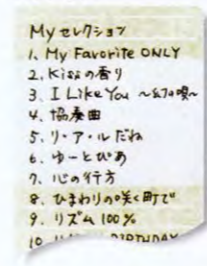 My セレクション
1. My Favorite ONLY
2. Kissの香り
3. I Like You
4. 協奏曲
5. リ・ア・ルだね
6. ゆーとぴあ
7. 心の行方
8. ひまわりの咲く町で
9. リズム 100%
10. BIRTHDAY